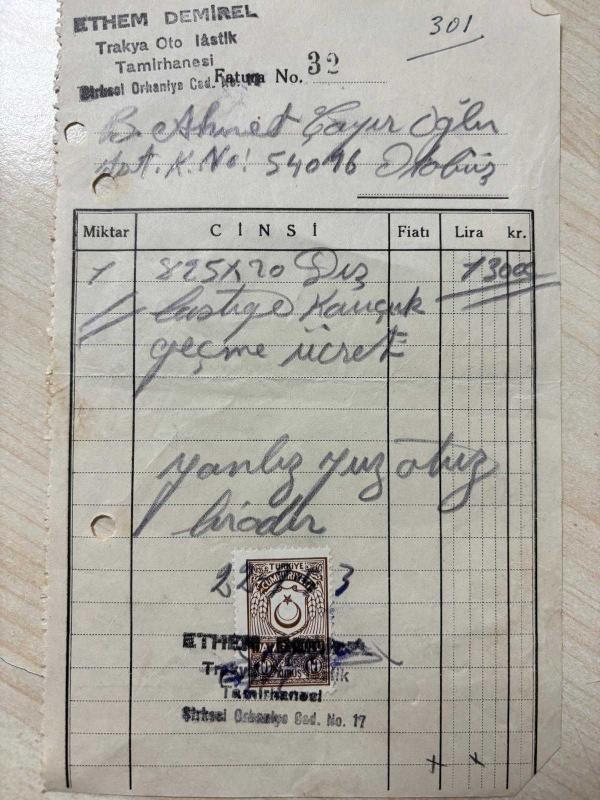 ETHEM DEMİREL
Trakya Oto lâstik
Tamirhanesi
Sirkeci Orhaniye Cad. No. 17
301
Fatura No. 32
B. Ahmet Çayır Oğlu
K. No: 54096 Otobüs
Miktar CİNSİ Fiatı Lira kr.
1 825X20 Dış 13000
lastiğe Kauçuk
geçme ücret
yanlız yuz otuz
liradır
22 3
TÜRKİYE
CUMHURİYETİ
ETHEM
Tamirhanesi
Sirkeci Orhaniye Cad. No. 17